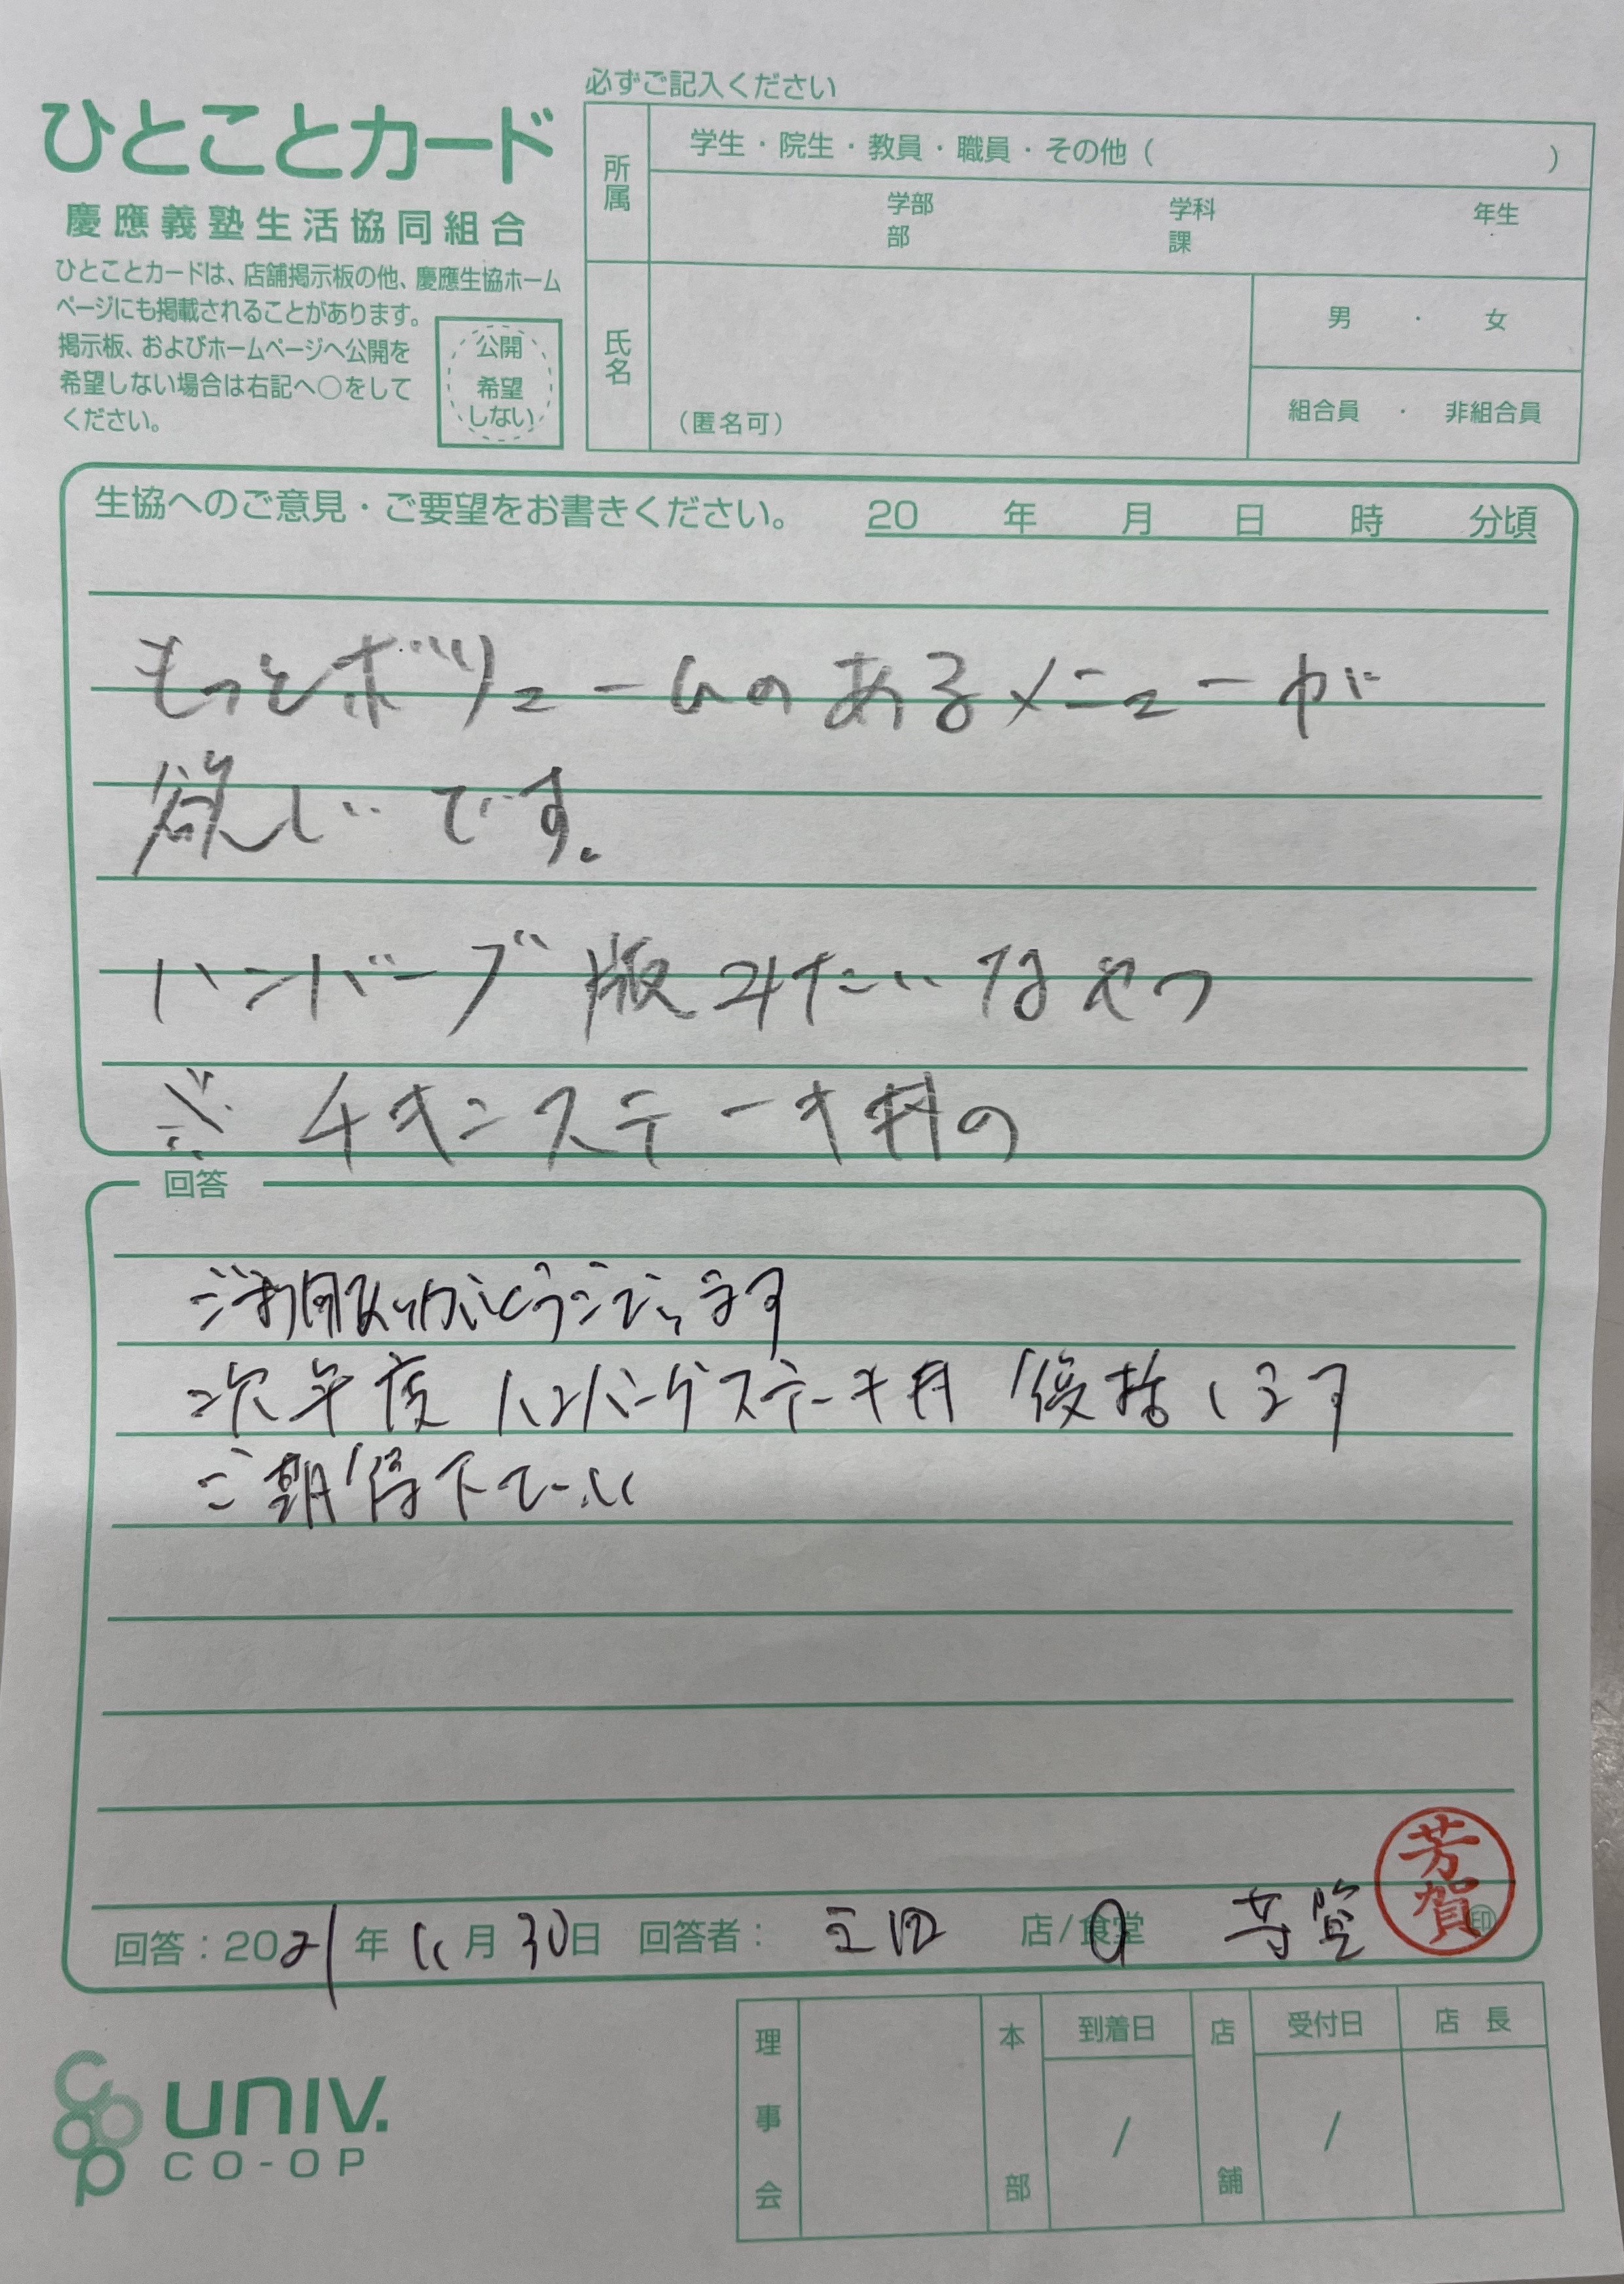 必ずご記入ください
ひとことカード
慶應義塾生活協同組合
ひとことカードは、店舗掲示板の他、慶應生協ホーム
ページにも掲載されることがあります。
掲示板、およびホームページへ公開を
希望しない場合は右記へ○をして
ください。
公開
希望
しない
所属
学生・院生・教員・職員・その他（ ）
学部 学科 年生
部 課
氏名
（匿名可）
男 ・ 女
組合員 ・ 非組合員
生協へのご意見・ご要望をお書きください。 20 年 月 日 時 分頃
もっとボリュームのあるメニューが
欲しいです。
ハンバーグ版みたいなやつ
※ チキンステーキ丼の
回答
ご利用ありがとうございます
次年度 ハンバーグステーキ丼 復活します
ご期待下さい
回答：2021年11月30日 回答者： 三田 店/食堂 芳賀
芳賀
印
理事会 本部 到着日 店舗 受付日 店長
/ /
coop univ.
CO-OP